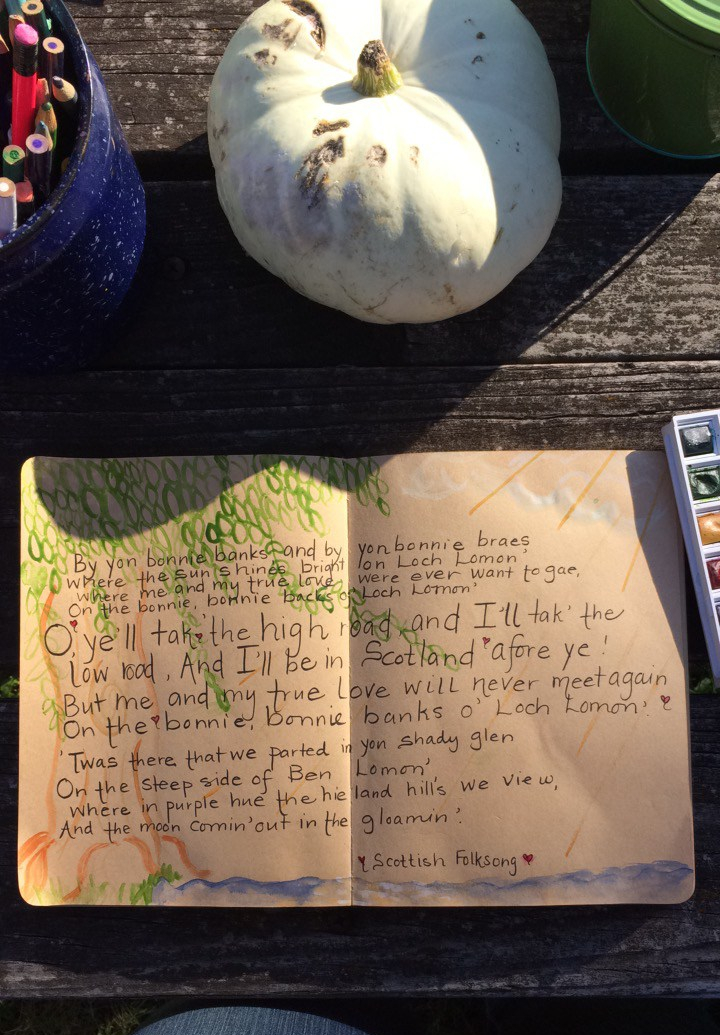 By yon bonnie banks and by yon bonnie braes
where the sun shines bright on Loch Lomon'
where me and my true love were ever want to gae,
On the bonnie, bonnie backs o' Loch Lomon'
O, ye'll tak the high road, and I'll tak' the
low road, And I'll be in Scotland afore ye!
But me and my true love will never meet again
On the bonnie, bonnie banks o' Loch Lomon'.
'Twas there that we parted in yon shady glen
On the steep side of Ben Lomon',
where in purple hue the hieland hills we view,
And the moon comin' out in the gloamin'.
Scottish Folksong